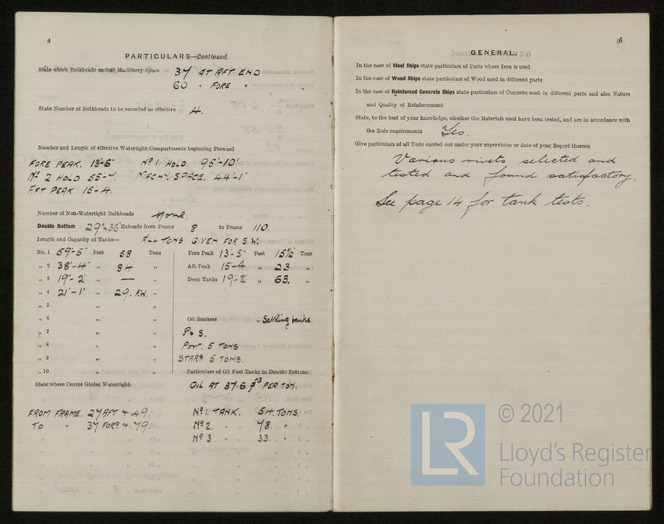 4
PARTICULARS—Continued.
State which Bulkheads enclose Machinery Space 37 AT AFT END
60 " FORE "
State Number of Bulkheads to be recorded as effective 4.
Number and Length of effective Watertight Compartments beginning Forward
FORE PEAK. 13'-6" No 1. HOLD. 95'-10"
No 2 HOLD MACHY. SPACE. 44'-1"
AFT PEAK 15-4.
Number of Non-Watertight Bulkheads None.
Double Bottom Extends from Frame 8 to Frame 110.
Length and Capacity of Tanks— ALL TONS GIVEN FOR S.W.
No. 1 59'-5" Feet 58 Tons Fore Peak 13'-5" Feet 15½ Tons
" 2 38'-4" " 84 " Aft Peak 15-4 " 23 "
" 3 19'-2" " — " Deep Tanks 19'-2" " 63. "
" 4 21'-1" " 29. F.W. "
" 5 " "
" 6 " " Oil Bunkers " Settling tanks.
" 7 " " P & S.
" 8 " " PORT. 5 TONS
" 9 " " STARB 5 TONS.
" 10 " " Particulars of Oil Fuel Tanks in Double Bottom:
State where Centre Girder Watertight OIL AT 37.6 PER TON.
FROM FRAME. 27 AFT & 49. No 1 TANK. 54 TONS.
TO " 37 FORD & 79. No 2. " 78 "
No 3 " 33 "
GENERAL.
In the case of Steel Ships state particulars of Parts where Iron is used
In the case of Wood Ships state particulars of Wood used in different parts
In the case of Reinforced Concrete Ships state particulars of Concrete used in different parts and also Nature
and Quality of Reinforcement
State, to the best of your knowledge, whether the Materials used have been tested, and are in accordance with
the Rule requirements Yes.
Give particulars of all Tests carried out under your supervision or date of your Report thereon
Various rivets selected and
tested and found satisfactory.
See page 14 for tank tests.
LR
© 2021
Lloyd's Register
Foundation